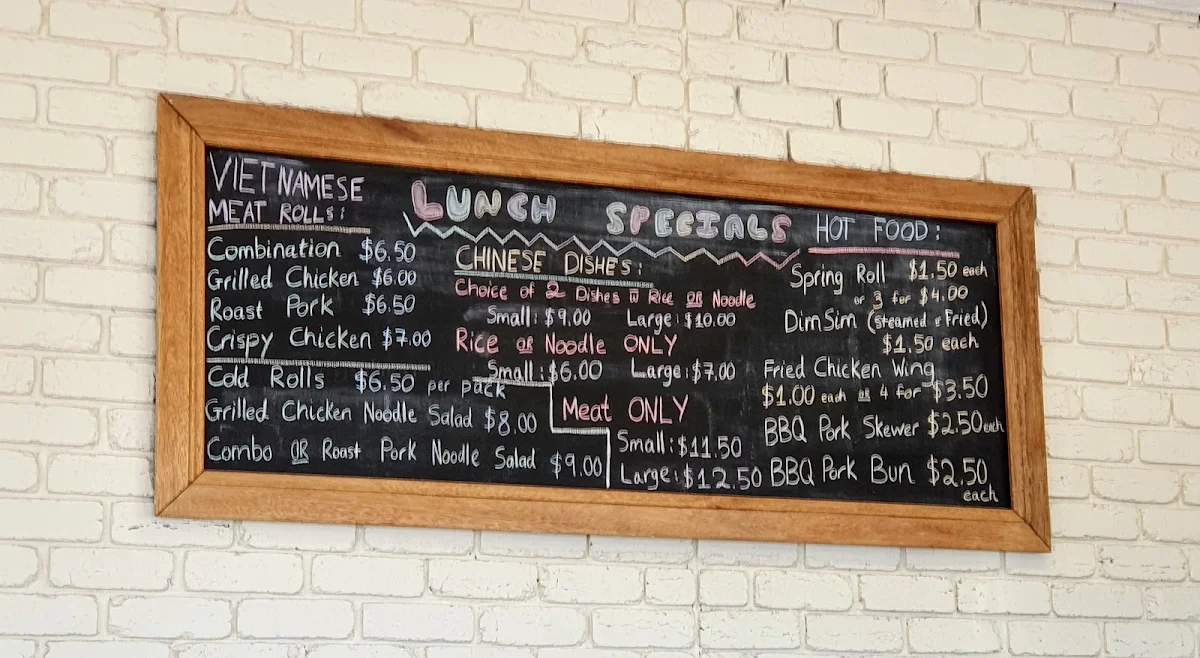 LUNCH SPECIALS
VIETNAMESE
MEAT ROLLS:
Combination $6.50
Grilled Chicken $6.00
Roast Pork $6.50
Crispy Chicken $7.00
Cold Rolls $6.50 per pack
Grilled Chicken Noodle Salad $8.00
Combo OR Roast Pork Noodle Salad $9.00
CHINESE DISHES:
Choice of 2 Dishes w Rice OR Noodle
Small: $9.00 Large: $10.00
Rice OR Noodle ONLY
Small: $6.00 Large: $7.00
Meat ONLY
Small: $11.50
Large: $12.50
HOT FOOD:
Spring Roll $1.50 each
or 3 for $4.00
Dim Sim (steamed & Fried)
$1.50 each
Fried Chicken Wing
$1.00 each OR 4 for $3.50
BBQ Pork Skewer $2.50 each
BBQ Pork Bun $2.50
each